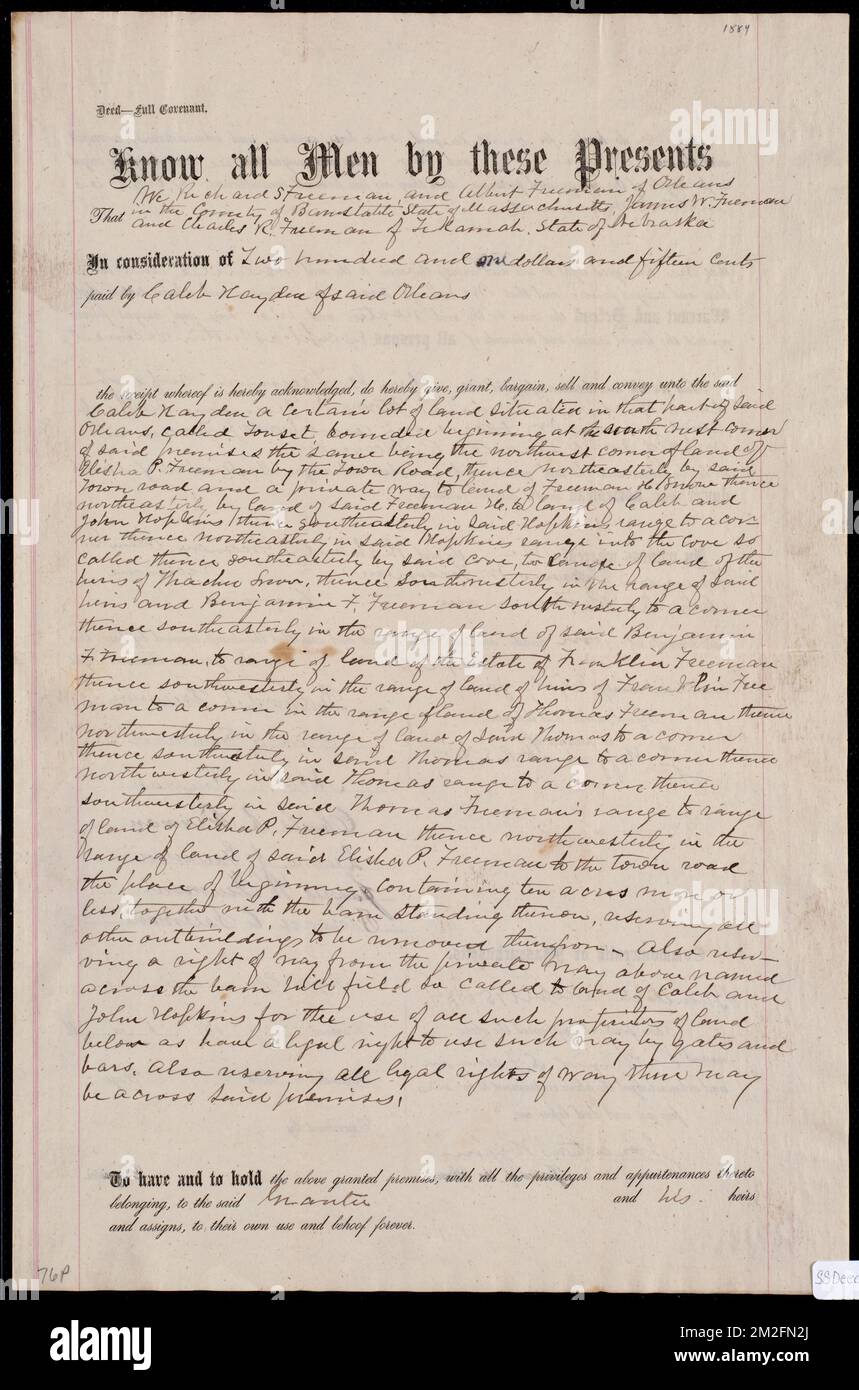 1884
Deed—Full Covenant.
Know all Men by these Presents
We Richard S Freeman, and Albert Freeman of Orleans
That in the County of Barnstable State of Massachusetts, James W. Freeman
and Charles R. Freeman of Tekamah, State of Nebraska
In consideration of Two hundred and one dollars and fifteen cents
paid by Caleb Hayden of said Orleans
the receipt whereof is hereby acknowledged, do hereby give, grant, bargain, sell and convey unto the said
Caleb Hayden a certain lot of land situated in that part of said
Orleans, called Tonset, bounded beginning at the south west corner
of said premises the same being the northwest corner of land of
Elisha P. Freeman by the Town Road, thence northeasterly by said
Town road and a private way to land of Freeman H. Snow thence
northeasterly by land of said Freeman H. to land of Caleb and
John Hopkins, thence southeasterly in said Hopkins range to a cor-
ner thence northeasterly in said Hopkins range into the cove so
called thence southeasterly by said cove, to range of land of the
heirs of Thacher Snow, thence southwesterly in the range of said
heirs and Benjamin F. Freeman southwesterly to a corner
thence southeasterly in the range of land of said Benjamin
F. Freeman, to range of land of the Estate of Franklin Freeman
thence southwesterly in the range of land of heirs of Franklin Free
man to a corner in the range of land of Thomas Freeman thence
northwesterly in the range of land of said Thomas to a corner
thence southwesterly in said Thomas range to a corner thence
northwesterly in said Thomas range to a corner thence
southwesterly in said Thomas Freeman's range to range
of land of Elisha P. Freeman thence northwesterly in the
range of land of said Elisha P. Freeman to the town road
the place of beginning. Containing ten acres more or
less, together with the barn standing thereon, reserving all
other outbuildings to be removed therefrom - Also reser-
ving a right of way from the private way above named
across the barn hill field so called to land of Caleb and
John Hopkins for the use of all such proprietors of land
below as have a legal right to use such way by gates and
bars. Also reserving all legal rights of way there may
be across said premises.
To have and to hold the above granted premises, with all the privileges and appurtenances thereto
belonging, to the said Grantee and his heirs
and assigns, to their own use and behoof forever.
76P
SSDeed
alamy
alamy
Image ID: 2M2FN2J
www.alamy.com